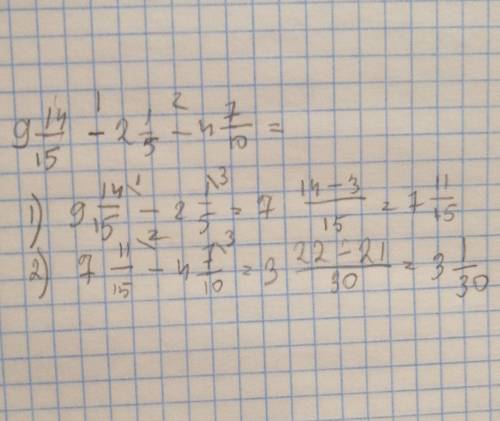 9 14/15 - 2 1/5 - 4 7/10 =
1) 9 14/15 - 2 1/5 = 7 (14-3)/15 = 7 11/15
2) 7 11/15 - 4 7/10 = 3 (22-21)/30 = 3 1/30